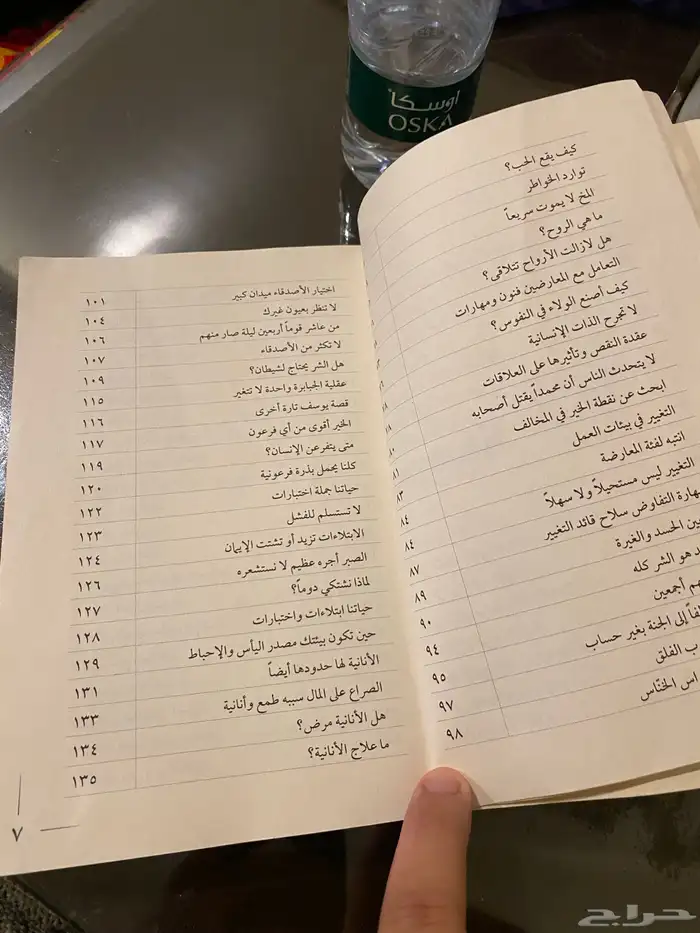 أوسكا
OSKA
كيف يقع الحب؟
توارد الخواطر
المخ لا يموت سريعاً
ما هي الروح؟
هل لازالت الأرواح تتلاقى؟
التعامل مع المعارضين فنون ومهارات
كيف أصنع الولاء في النفوس؟
لا تجرح الذات الإنسانية
عقدة النقص وتأثيرها على العلاقات
لا يتحدث الناس أن محمداً يقتل أصحابه
ابحث عن نقطة الخير في المخالف ٨١
التغيير في بيئات العمل ٨٣
انتبه لفئة المعارضة ٨٤
التغيير ليس مستحيلاً ولا سهلاً ٨٤
التفاوض سلاح قائد التغيير ٨٧
الحسد والغيرة ٨٩
هو الشر كله ٩٠
أجمعين ٩٤
إلى الجنة بغير حساب ٩٥
الفلق ٩٧
الخنّاس ٩٨
اختيار الأصدقاء ميدان كبير ١٠١
لا تنظر بعيون غيرك ١٠٤
من عاشر قوماً أربعين ليلة صار منهم ١٠٦
لا تكثر من الأصدقاء ١٠٧
هل الشر يحتاج لشيطان؟ ١٠٩
عقلية الجبابرة واحدة لا تتغير ١١٥
قصة يوسف تارة أخرى ١١٦
الخير أقوى من أي فرعون ١١٧
متى يتفرعن الإنسان؟ ١١٩
كلنا يحمل بذرة فرعونية ١٢٠
حياتنا جملة اختبارات ١٢٢
لا تستسلم للفشل ١٢٣
الابتلاءات تزيد أو تشتت الإيمان ١٢٤
الصبر أجره عظيم لا نستشعره ١٢٦
لماذا نشتكي دوماً؟ ١٢٧
حياتنا ابتلاءات واختبارات ١٢٨
حين تكون بيئتك مصدر اليأس والإحباط ١٢٩
الأنانية لها حدودها أيضاً ١٣١
الصراع على المال سببه طمع وأنانية ١٣٣
هل الأنانية مرض؟ ١٣٤
ما علاج الأنانية؟ ١٣٥
٧
حراج